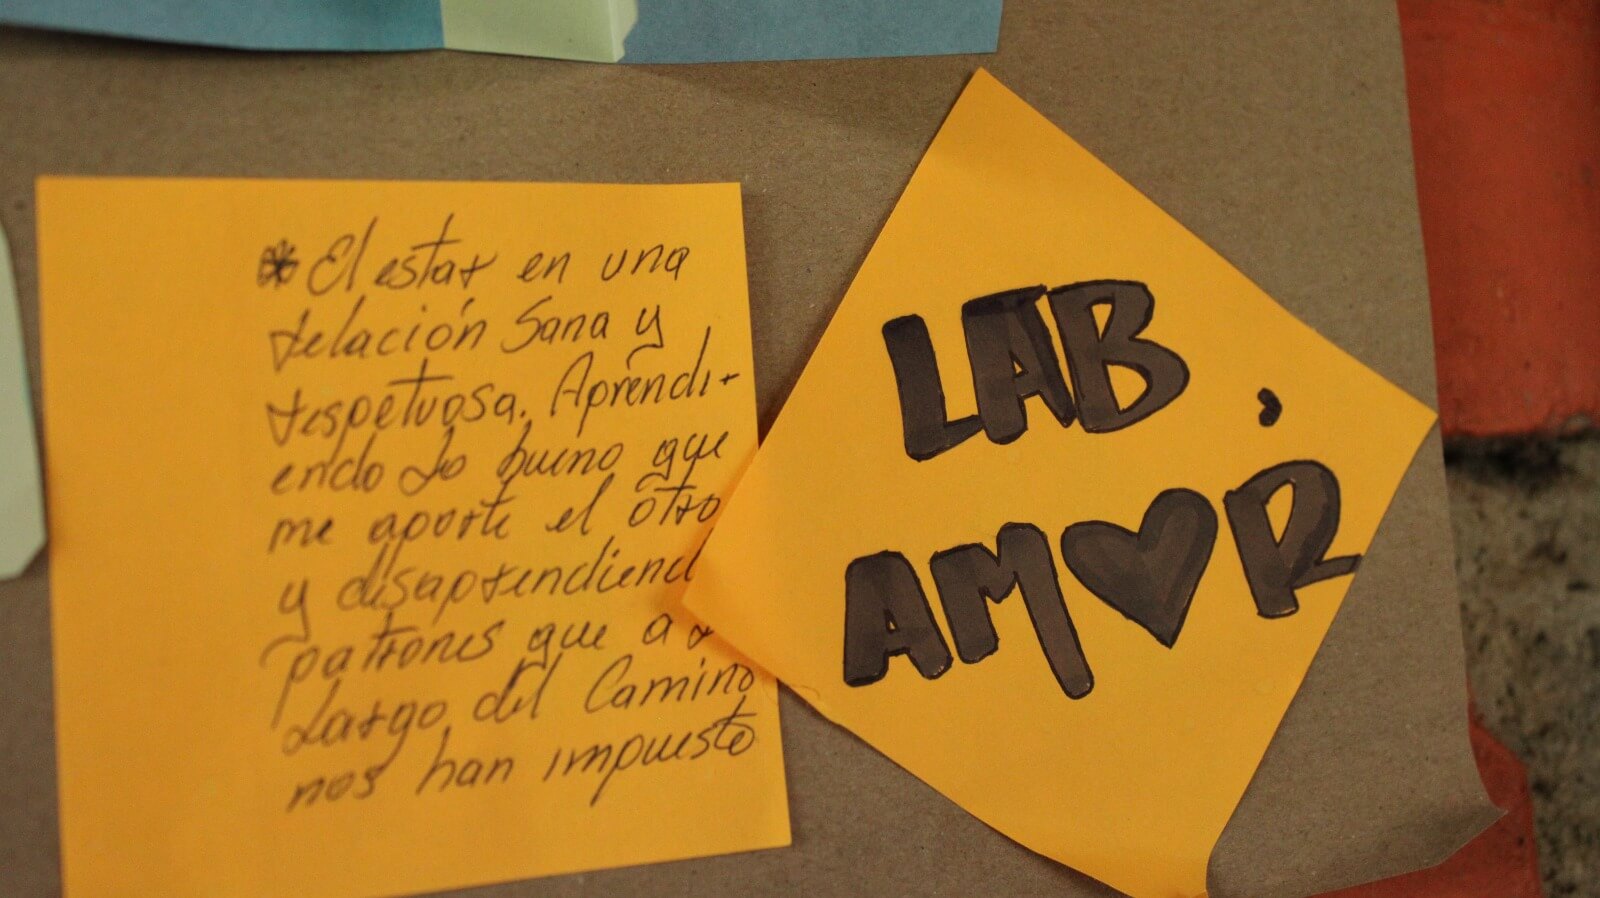 * El estar en una
relación Sana y
respetuosa. Aprendi-
endo lo bueno que
me aporte el otro
y disaprendiend
patrones que a
Largo del Camino
nos han impuesto
LAB,
AM♥R